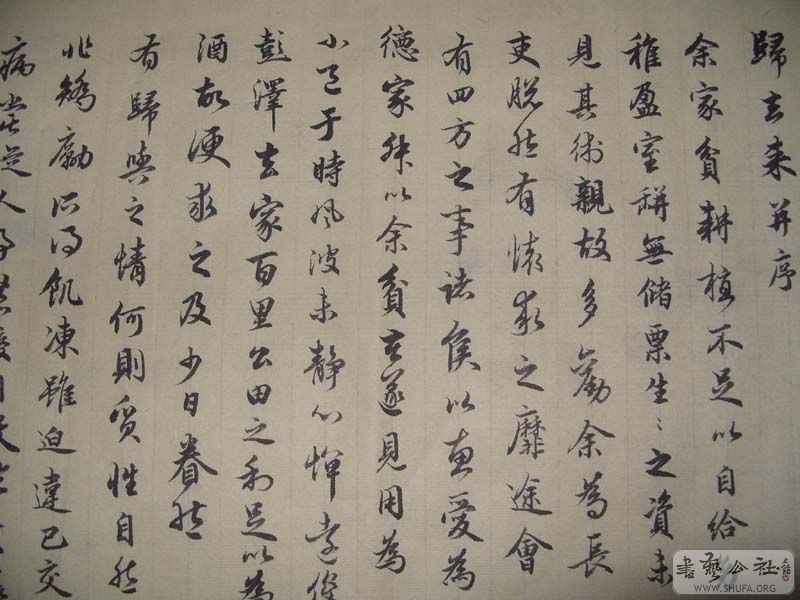 歸去来并序
余家貧耕植不足以自給
稚盈室缾無儲粟生〻之資未
見其術親故多勸余為長
吏脫然有懷求之靡途會
有四方之事諸侯以惠愛為
德家叔以余貧苦遂見用為
小邑于時風波未靜心憚遠役
彭澤去家百里公田之利足以為
酒故便求之及少日眷然
有歸與之情何則質性自然
非矯勵所得飢凍雖迫違己交
病嘗從人事
書藝公社
WWW.SHUFA.ORG